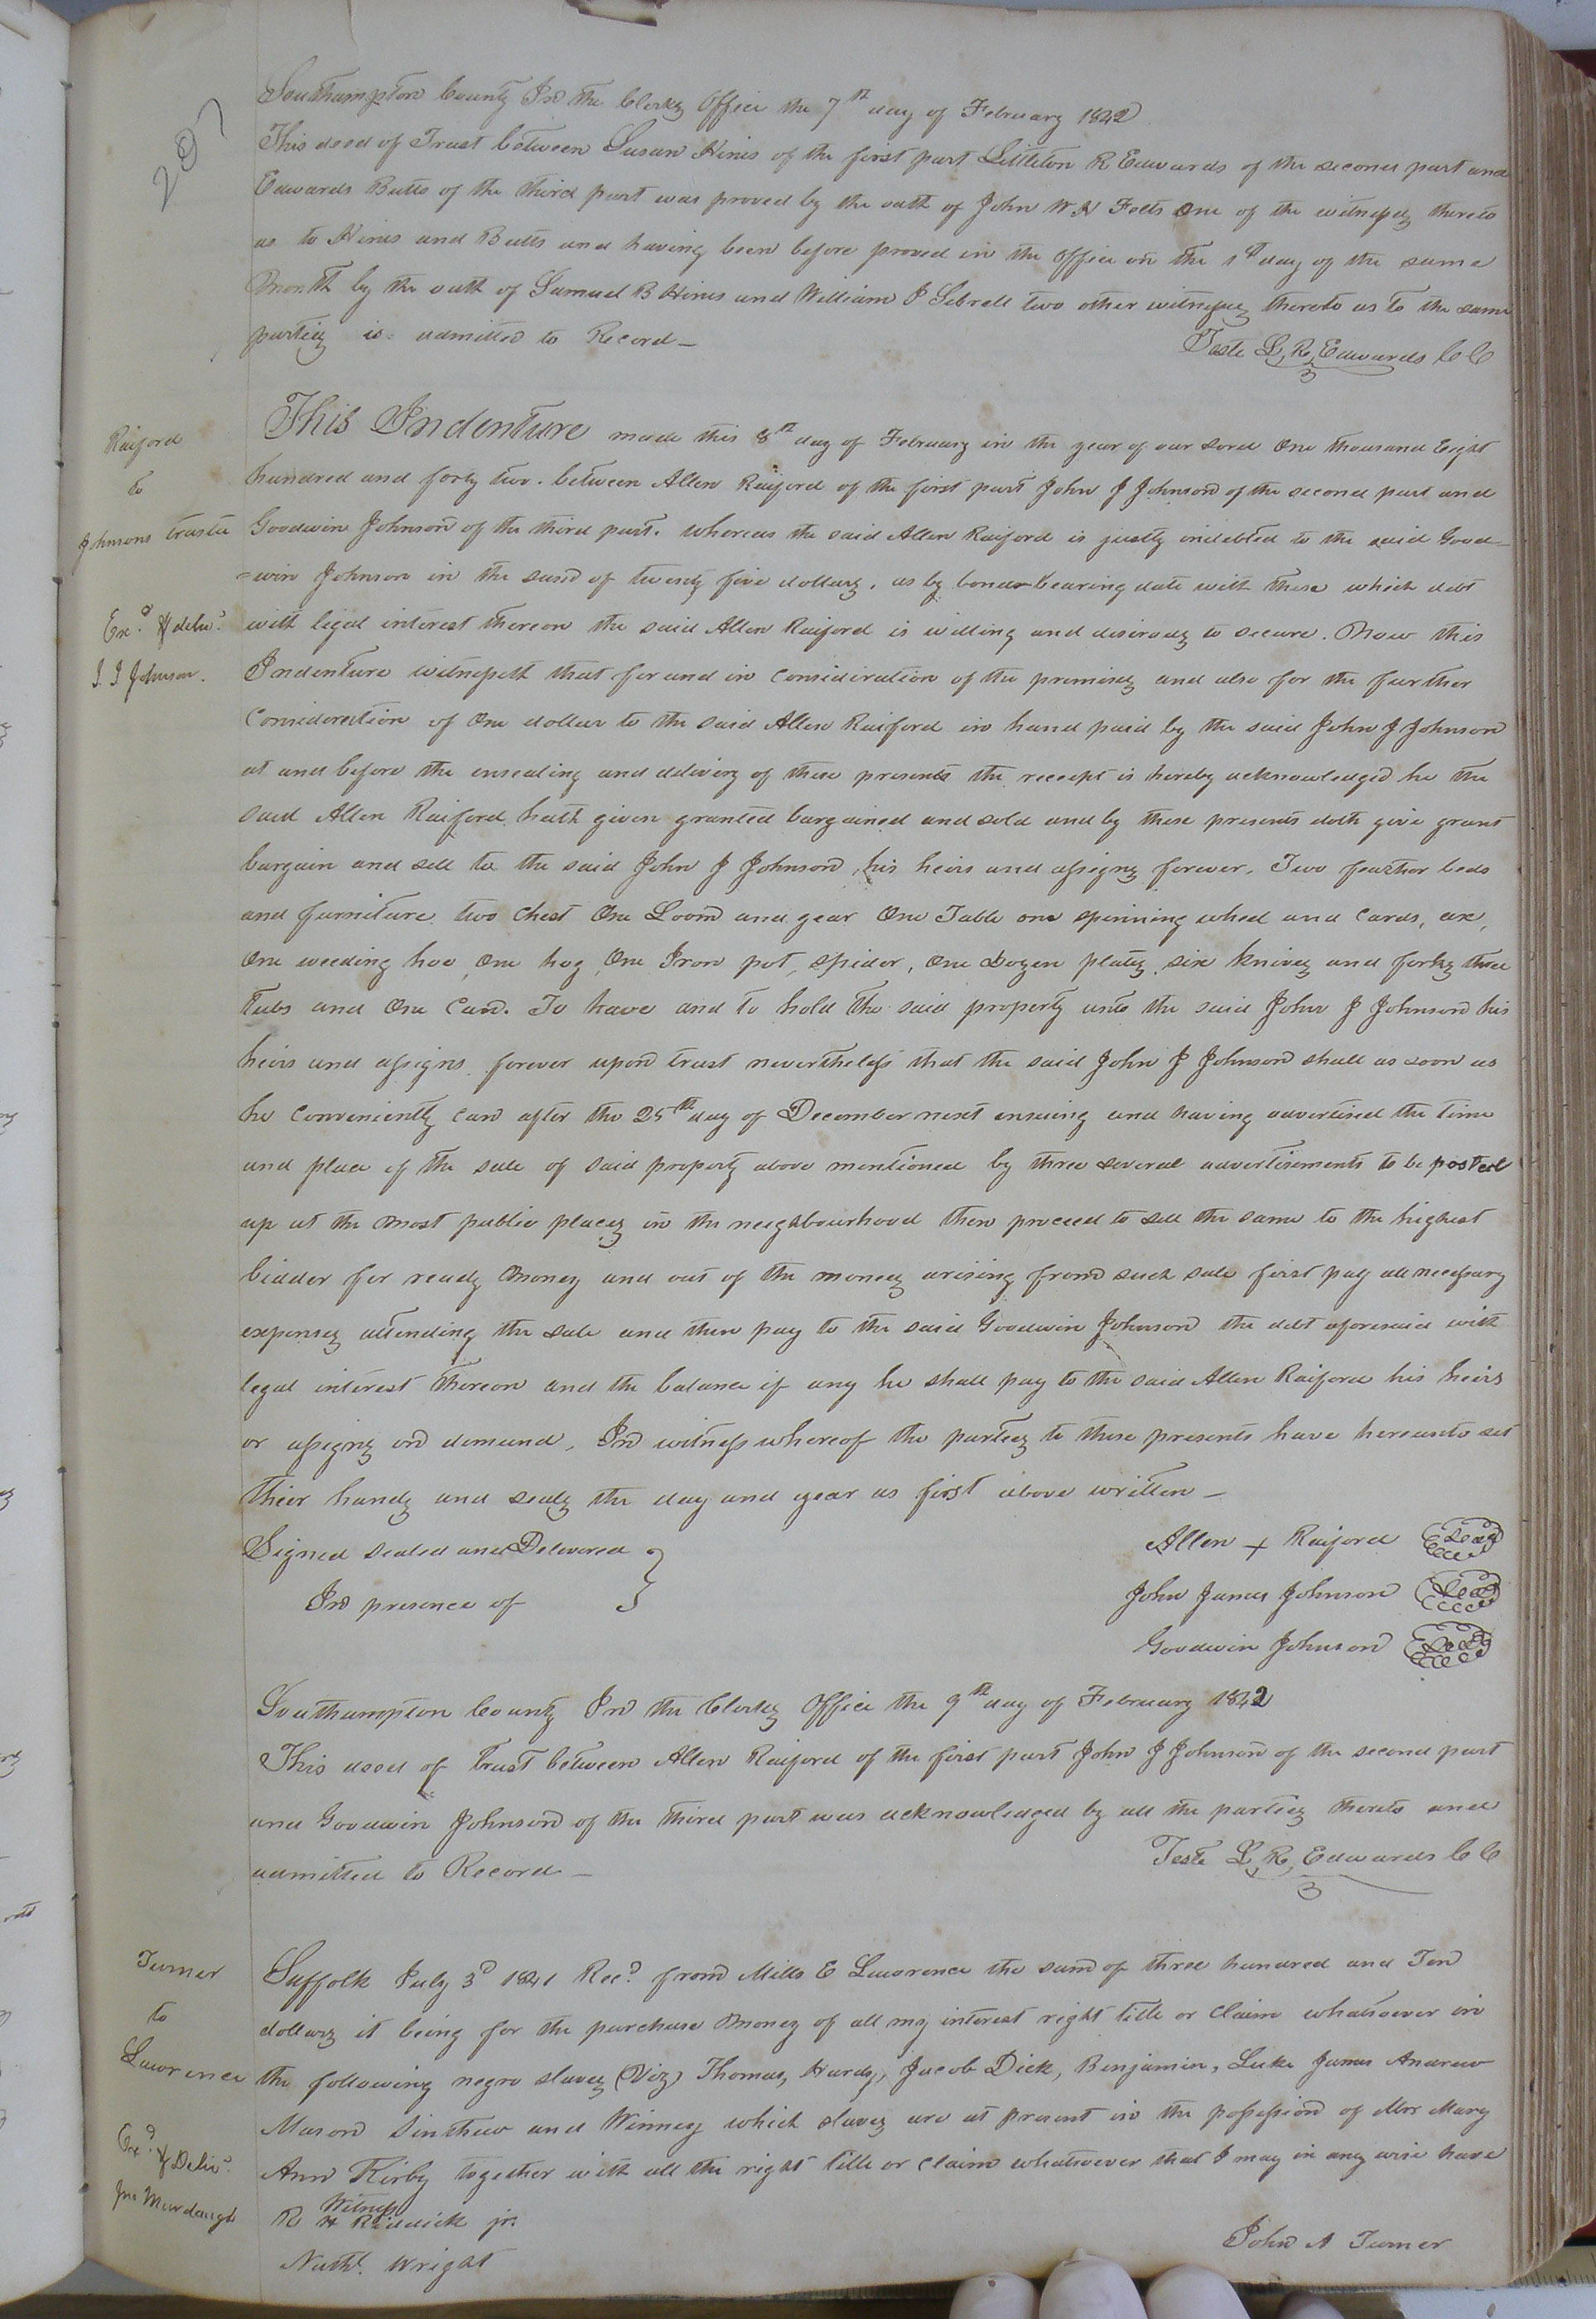 207
Southampton County In the Clerks Office the 7th day of February 1842
This deed of Trust between Susan Hines of the first part Littleton R Edwards of the second part and
Edwards Butts of the third part was proved by the oath of John W H Felts One of the witnesses thereto
as to Hines and Butts and having been before proved in the Office on the 1st day of the same
Month by the oath of Samuel B Hines and William J Sebrell two other witnesses thereto as to the same
parties is admitted to Record _
Teste L, R, Edwards C C
Raiford
to
Johnsons trustee
Exd. & delivd.
J. J Johnson.
This Indenture made this 8th day of February in the year of our Lord One thousand Eight
hundred and forty two. between Allen Raiford of the first part John J Johnson of the second part and
Goodwin Johnson of the third part. whereas the said Allen Raiford is justly indebted to the said Good=
=win Johnson in the sum of twenty five dollars, as by bond bearing date with these which debt
with legal interest thereon the said Allen Raiford is willing and desirous to secure. Now this
Indenture witnesseth that for and in Consideration of the premises and also for the further
Consideration of One dollar to the said Allen Raiford in hand paid by the said John J Johnson
at and before the ensealing and delivery of these presents the receipt is hereby acknowledged he the
said Allen Raiford hath given granted bargained and sold and by these presents doth give grant
bargain and sell to the said John J Johnson, his heirs and assigns forever, Two feather beds
and furniture two Chest One Loom and gear One Table one spinning wheel and Cards, axe,
One weeding hoe, One hog, One Iron pot, spider, One Dozen plates, six knives and forks three
tubs and One Can. To have and to hold the said property unto the said John J Johnson his
heirs and assigns forever upon trust nevertheless that the said John J Johnson shall as soon as
he Conveniently can after the 25th day of December next ensuing and having advertised the time
and place of the sale of said property above mentioned by three several advertisements to be posted
up at the Most public places in the neighbourhood then proceed to sell the same to the highest
bidder for ready Money and out of the money arising from such sale first pay all necessary
expenses attending the sale and then pay to the said Goodwin Johnson the debt aforesaid with
legal interest thereon and the balance if any he shall pay to the said Allen Raiford his heirs
or assigns on demand, In witness whereof the parties to these presents have hereunto set
their hands and seals the day and year as first above written _
Signed sealed and Delivered
In presence of
Allen + Raiford Seal
John James Johnson Seal
Goodwin Johnson Seal
Southampton County In the Clerks Office the 9th day of February 1842
This deed of trust between Allen Raiford of the first part John J Johnson of the second part
and Goodwin Johnson of the third part was acknowledged by all the parties thereto and
admitted to Record _
Teste L, R, Edwards C C
Turner
to
Lawrence
Exd. & Delivd.
Jno Murdaugh
Suffolk July 3d 1841 Recd. from Mills E Lawrence the sum of three hundred and Ten
dollars it being for the purchase Money of all my interest right title or Claim whatsoever in
the following negro slaves (Viz) Thomas, Hardy, Jacob Dick, Benjamin, Luke James Andrew
Mason Sinthea and Winney which slaves are at present in the possession of Mrs Mary
Ann Kirby together with all the right title or Claim whatsoever that I may in any wise have
Witness
R H Riddick jr.
Nathl. Wright
John A Turner